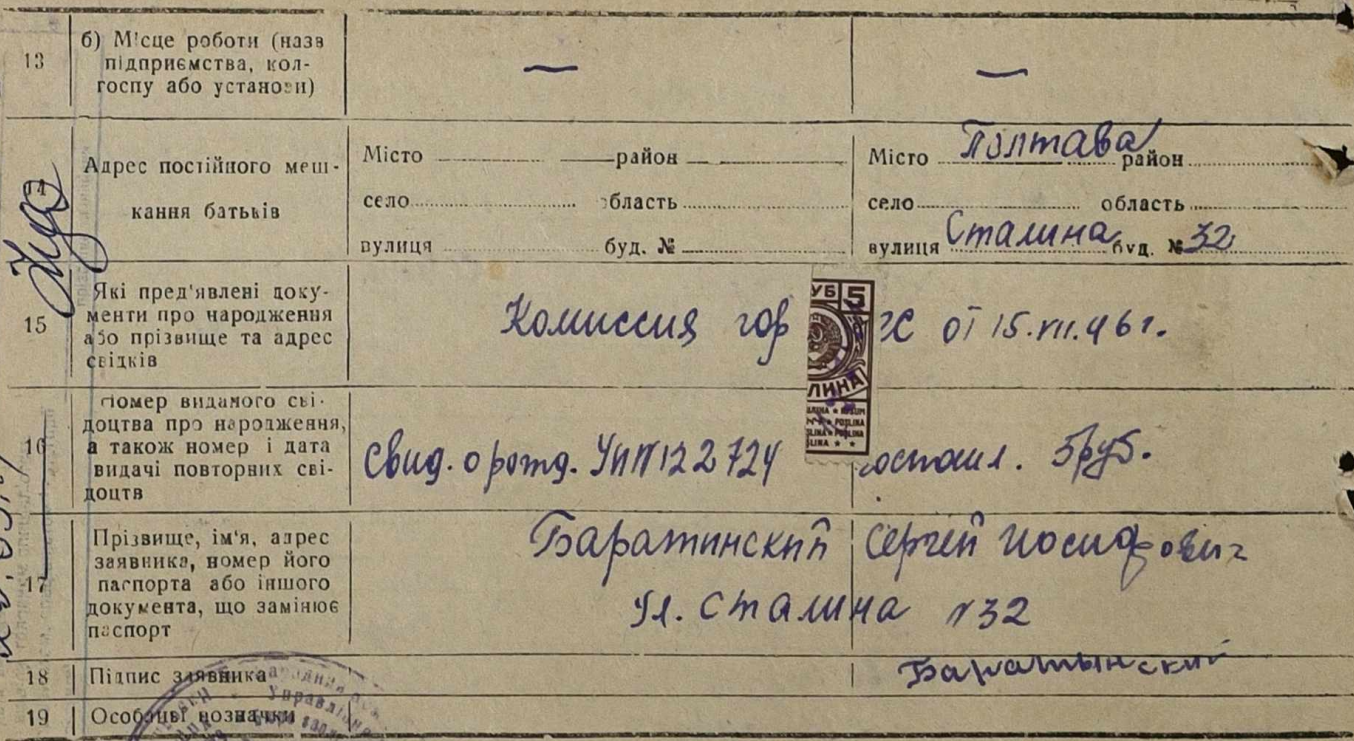 13
б) Місце роботи (назв
підприємства, кол-
госпу або установи)
—
—
Адрес постійного меш-
кання батьків
Місто район
село область
вулиця буд. №
Місто Полтава район
село область
вулиця Сталина буд. № 32
15
Які пред'явлені доку-
менти про народження
або прізвище та адрес
свідків
Комиссия гор от 15.VII.46 г.
УБ 5
ЛИНА
16
Номер виданого сві-
доцтва про народження,
а також номер і дата
видачі повторних сві-
доцтв
Свид. о рожд. 122724 5 руб.
17
Прізвище, ім'я, адрес
заявника, номер його
паспорта або іншого
документа, що замінює
паспорт
Баратинский Сергей Иосифович
ул. Сталина №32
18
Підпис заявника
Баратынский
19
Особливі позначки